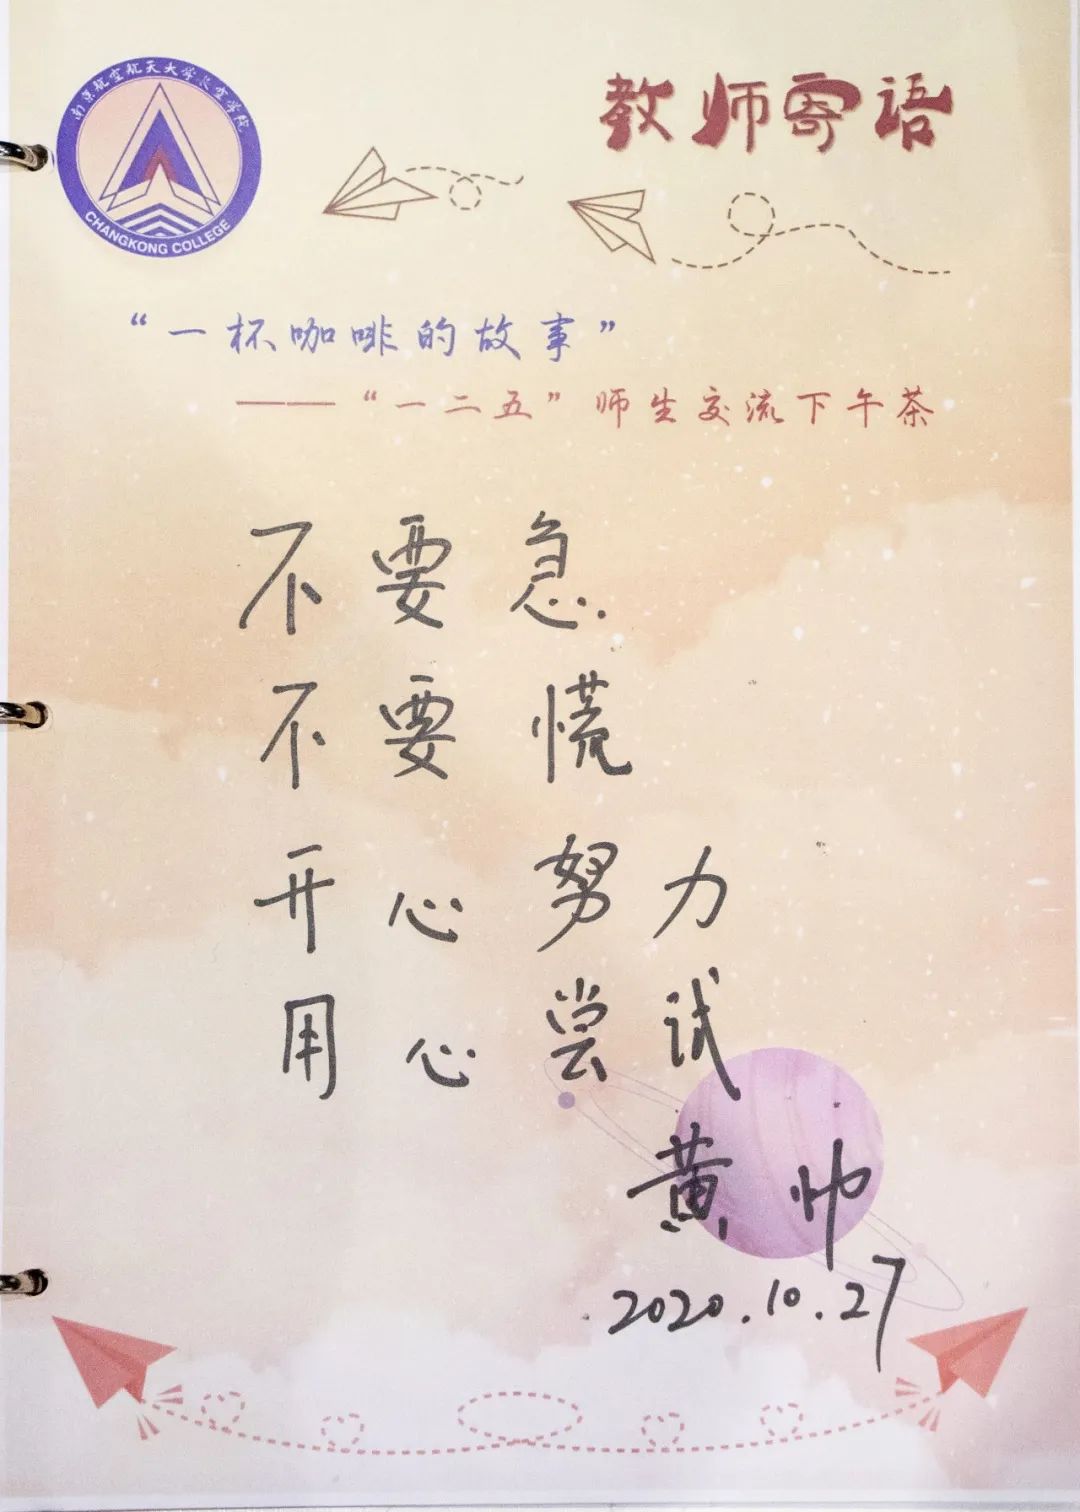 南京航空航天大学长空学院
CHANGKONG COLLEGE
教师寄语
“一杯咖啡的故事”
——“一二五”师生交流下午茶
不要急
不要慌
开心努力
用心尝试
黄帅
2020.10.27